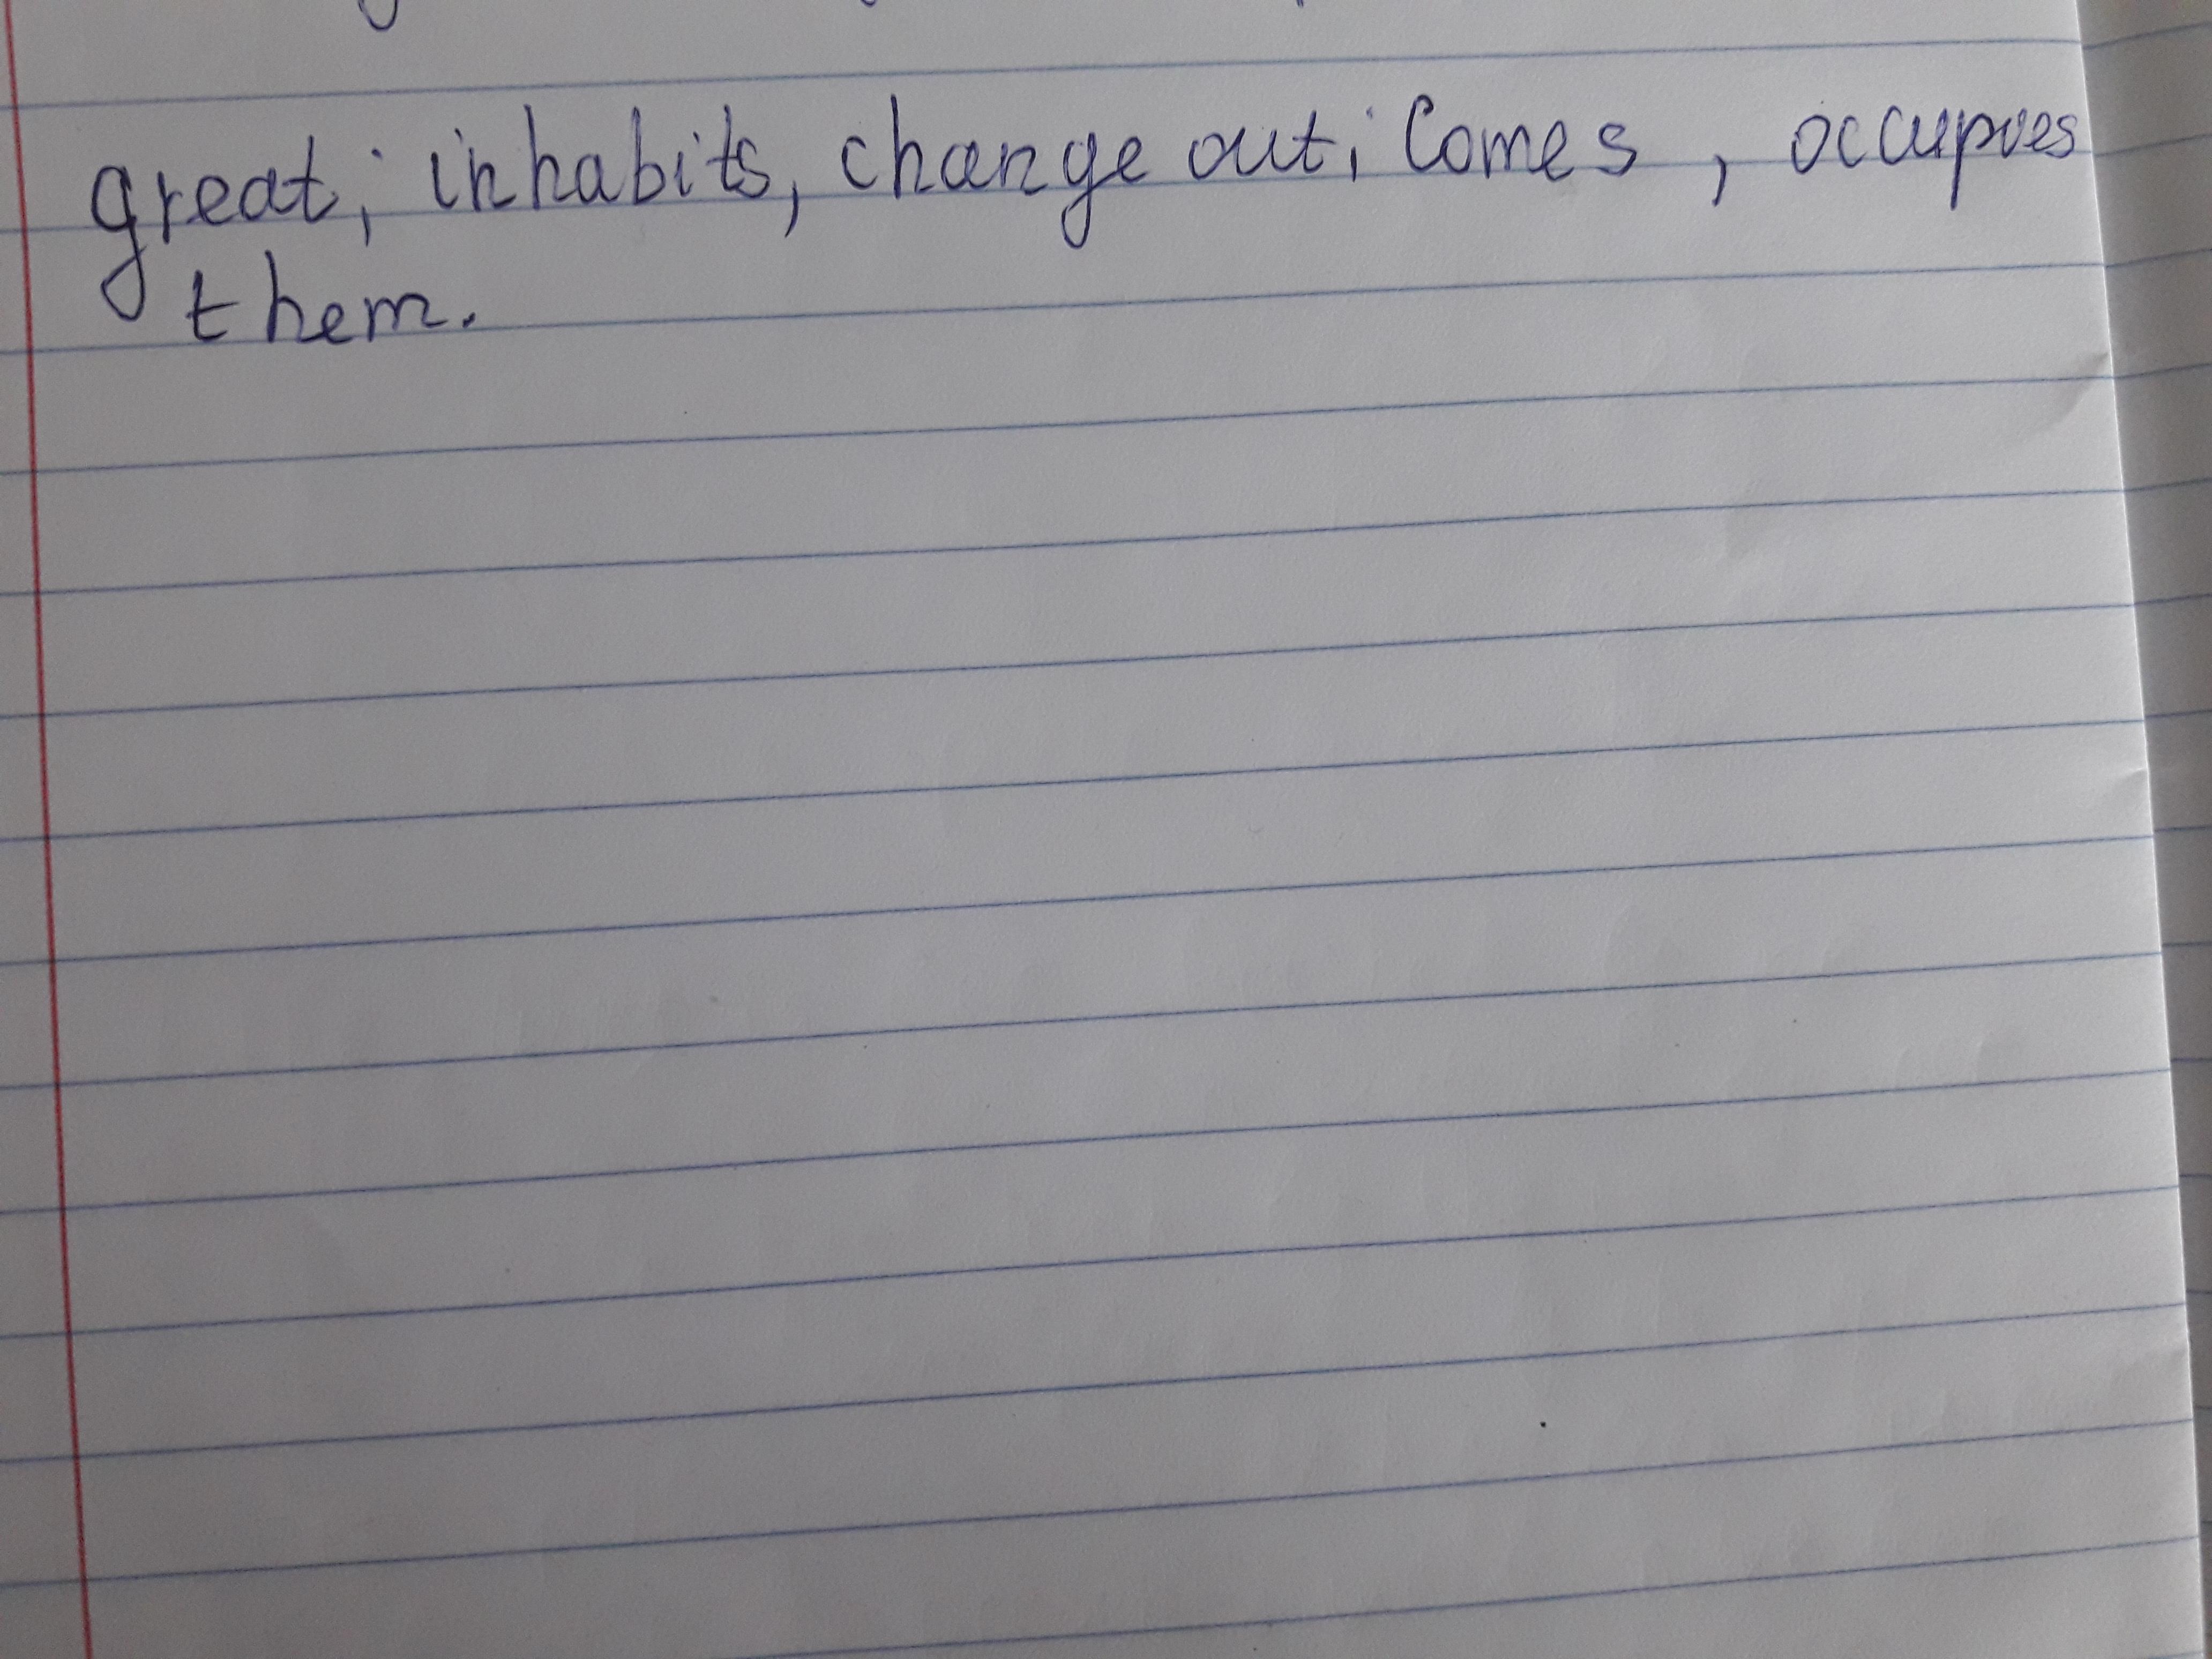 great; inhabits, change out; Comes, occupves
them.